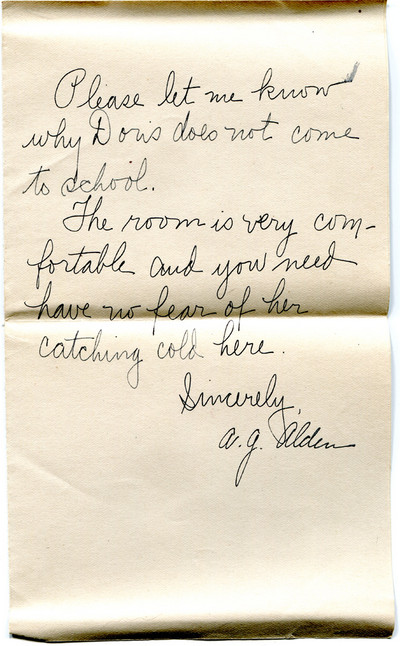 Please let me know
why Doris does not come
to school.
The room is very com-
fortable and you need
have no fear of her
catching cold here.
Sincerely,
A. G. Alden